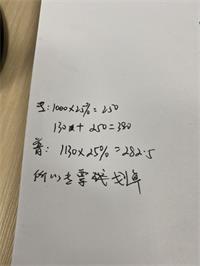 专：1000×25%=250
130+250=380
普：1130×25%=282.5
所以专票划算